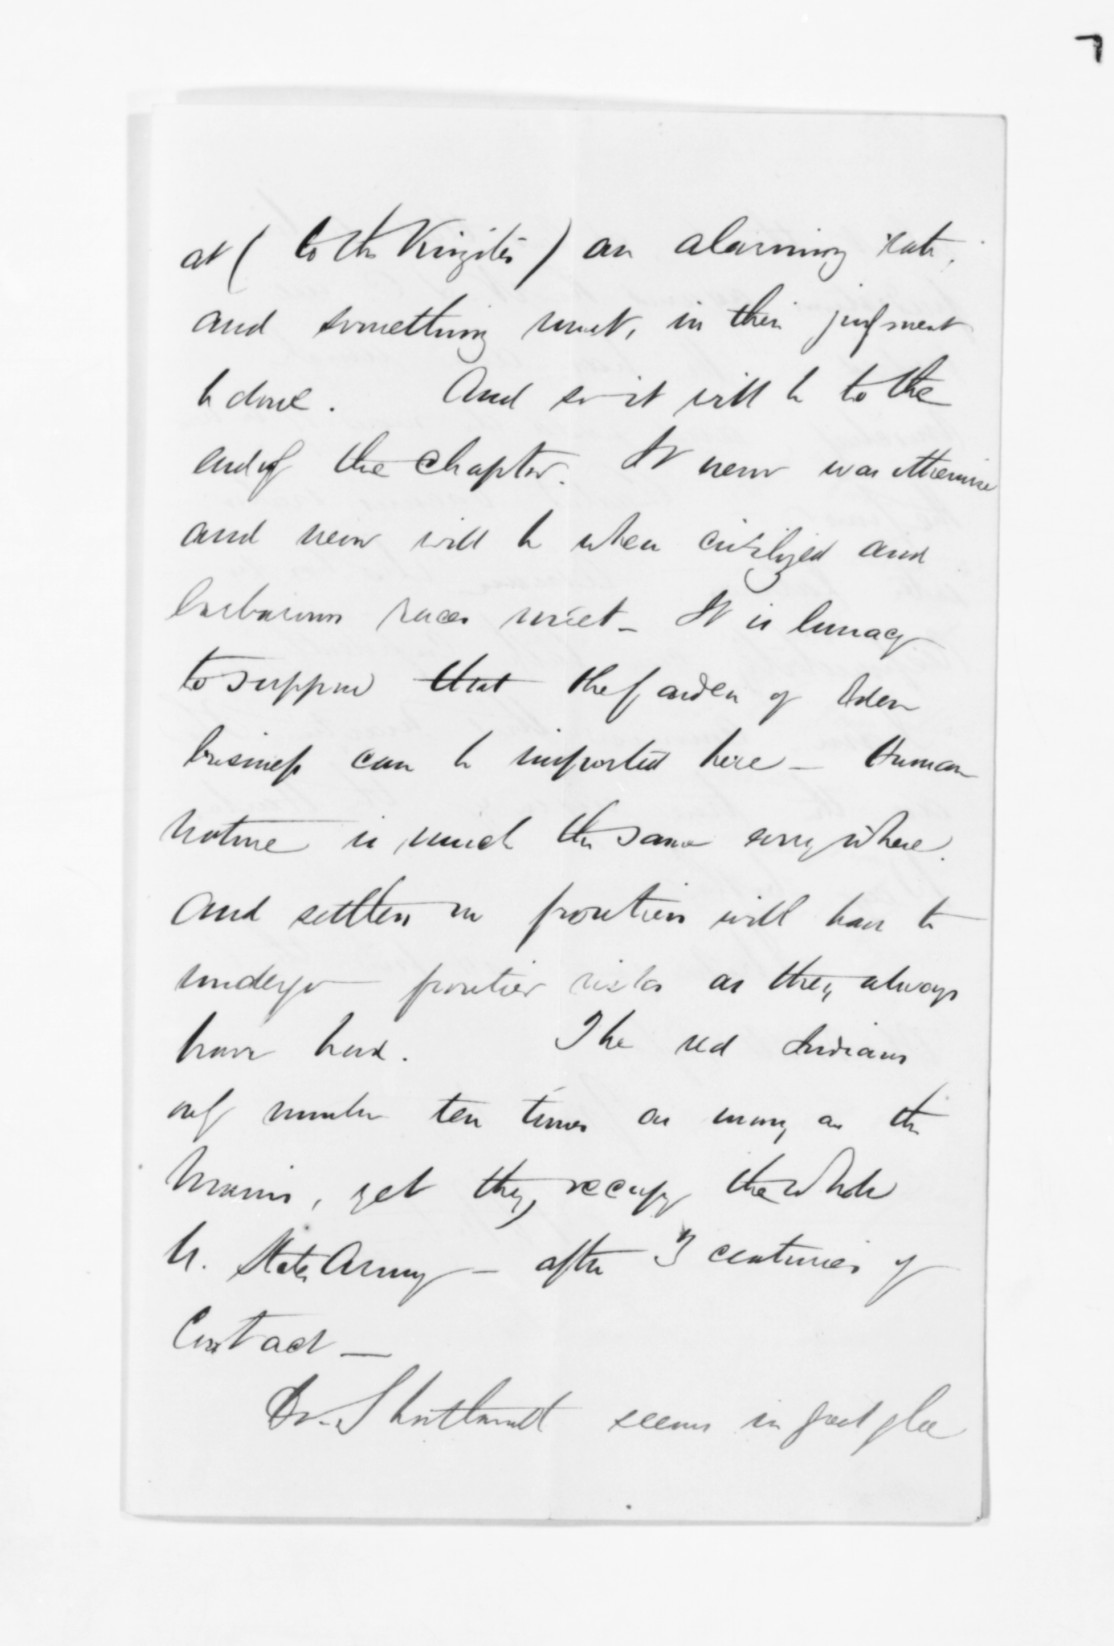 7
at ( to the Kingites ) an alarming rate,
and something must, in their judgment
be done. And so it will be to the
end of the chapter. It never was otherwise
and never will be when civilized and
barbarous races meet - It is lunacy
to suppose that the Garden of Eden
business can be imported here - Human
nature is much the same everywhere.
And settlers on frontiers will have to
undergo frontier risks as they always
have had. The red Indians
only number ten times as many as the
Maoris, yet they occupy the whole
U. States Army - after 3 centuries of
Contact -
Dr. Shortland seems in great glee